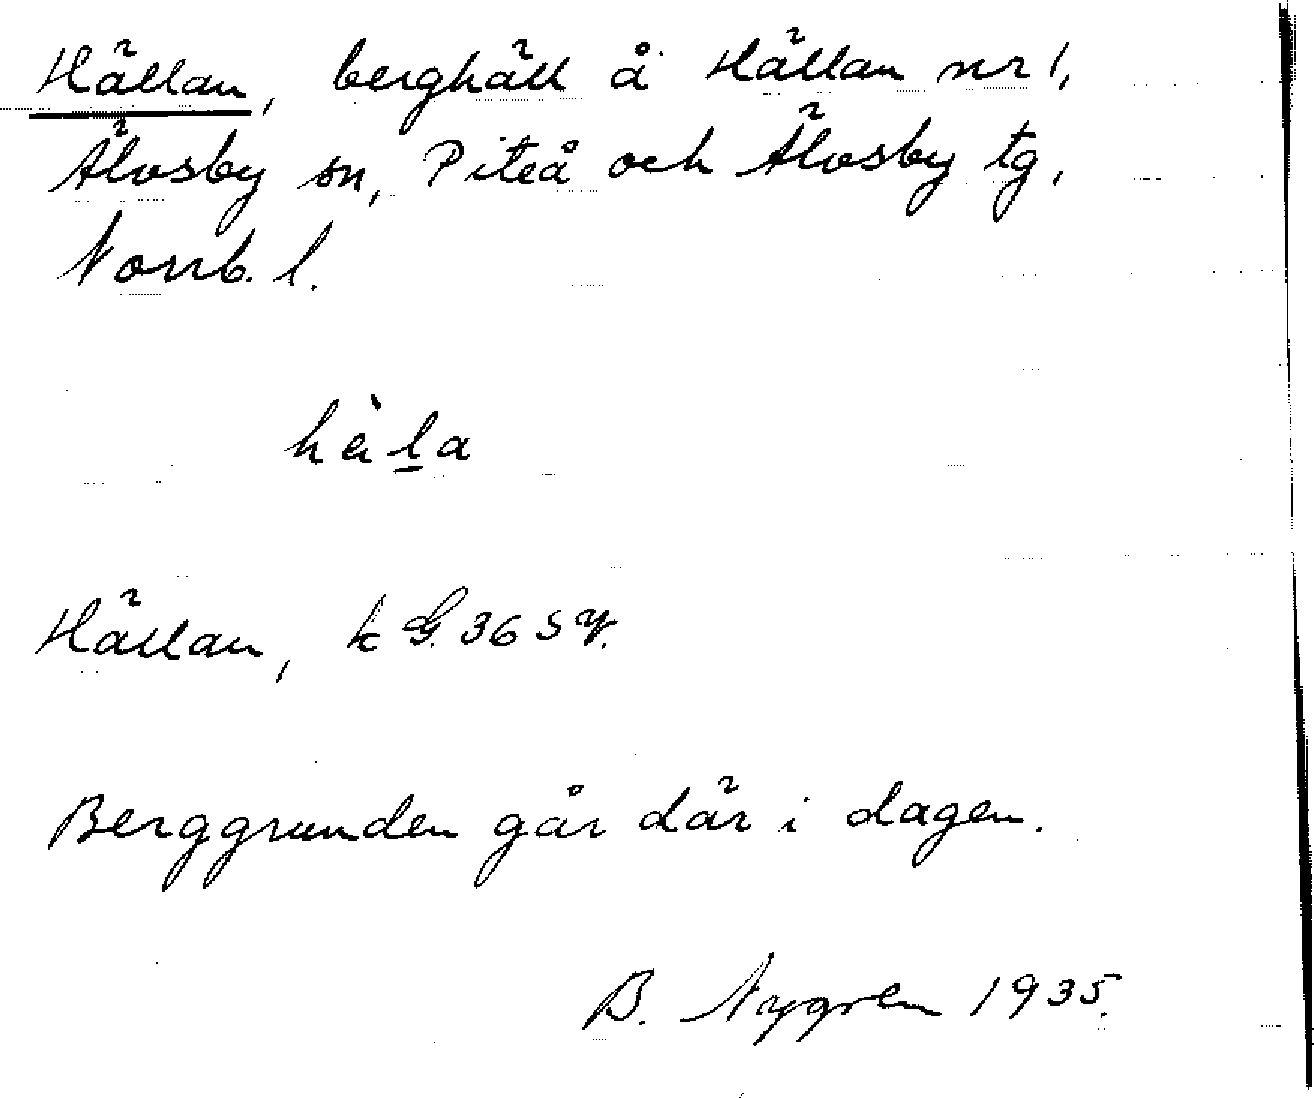 Hällan, berghäll å Hällan nr 1,
Älvsby sn, Piteå och Älvsby tg,
Norrb. l.
hàl̲a
Hällan, k G. 36 SV.
Berggrunden går där i dagen.
B. Nygren 1935.